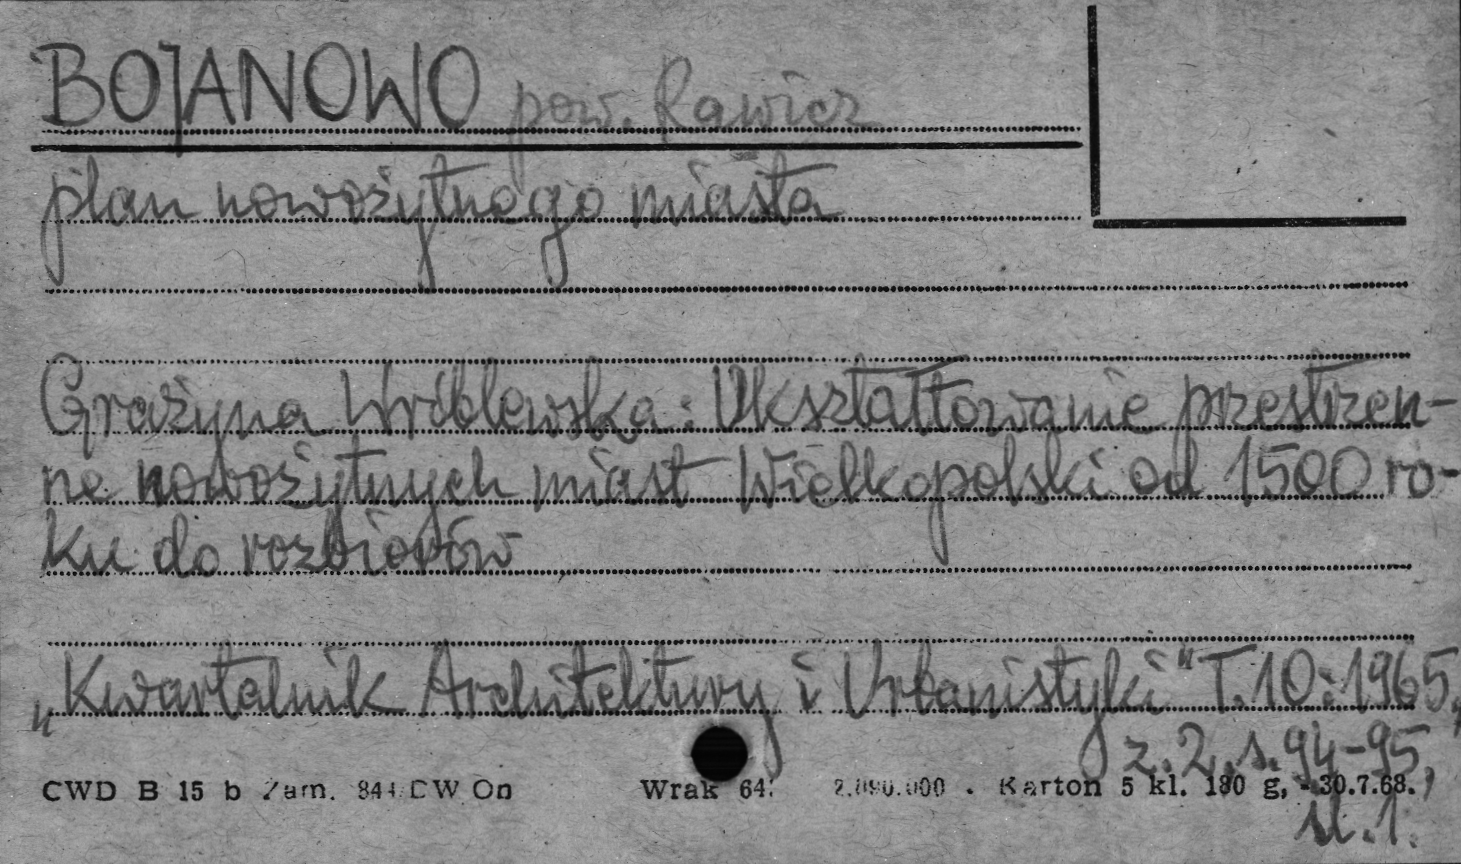 BOJANOWO pow. Rawicz
plan nowożytnego miasta
Grażyna Wróblewska: Ukształtowanie przestrzen-
ne nowożytnych miast Wielkopolski od 1500 ro-
ku do rozbiorów
„Kwartalnik Architektury i Urbanistyki" T.10:1965,
z. 2, s. 94-95,
il. 1.
CWD B 15 b Zam. 844 CW On Wrak 64: 2.090.000 . Karton 5 kl. 180 g, - 30.7.68.